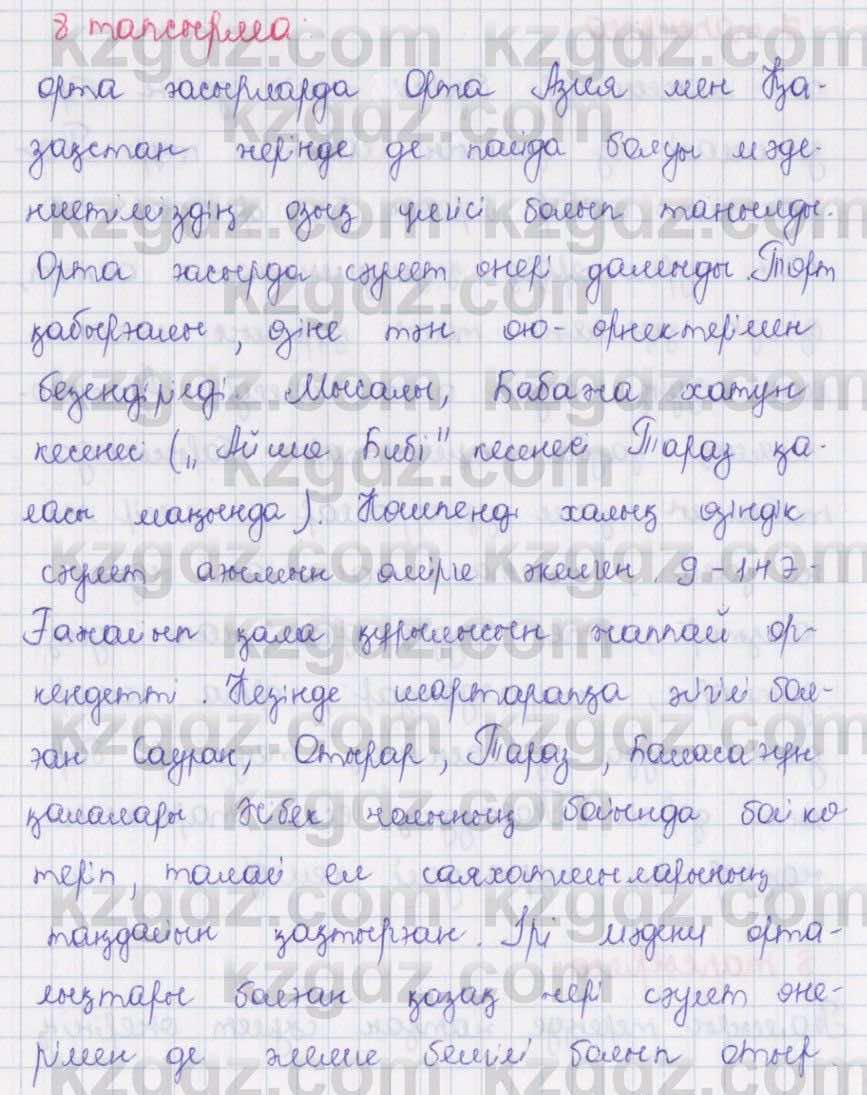 8 тапсырма
орта ғасырларда Орта Азия мен Қа-
зақстан жерінде де пайда болуы мәде-
ниетіміздің озық үлгісі болып танылды.
Орта ғасырда сәулет өнері дамыды. Төрт
қабырғалы, өзіне тән ою-өрнектерімен
безендірілді. Мысалы, Бабажа хатун
кесенесі („Айша Бибі" кесенесі Тараз қа-
ласы маңында). Көшпенді халық өзіндік
сәулет ағымын өмірге әкелген.
Ғажайып қала құрылысын жаппай өр-
кендетті. Кезінде шартарапқа әйгілі бол-
ған Сауран, Отырар, Тараз, Баласағұн
қалалары Жібек жолының бойында бой кө
теріп, талай ел саяхатшыларының
таңдайын қақтырған. Ірі мәдени орта-
лықтары болған қазақ жері сәулет өне-
рімен де әлемге белгілі болып отыр.
kzgdz.com